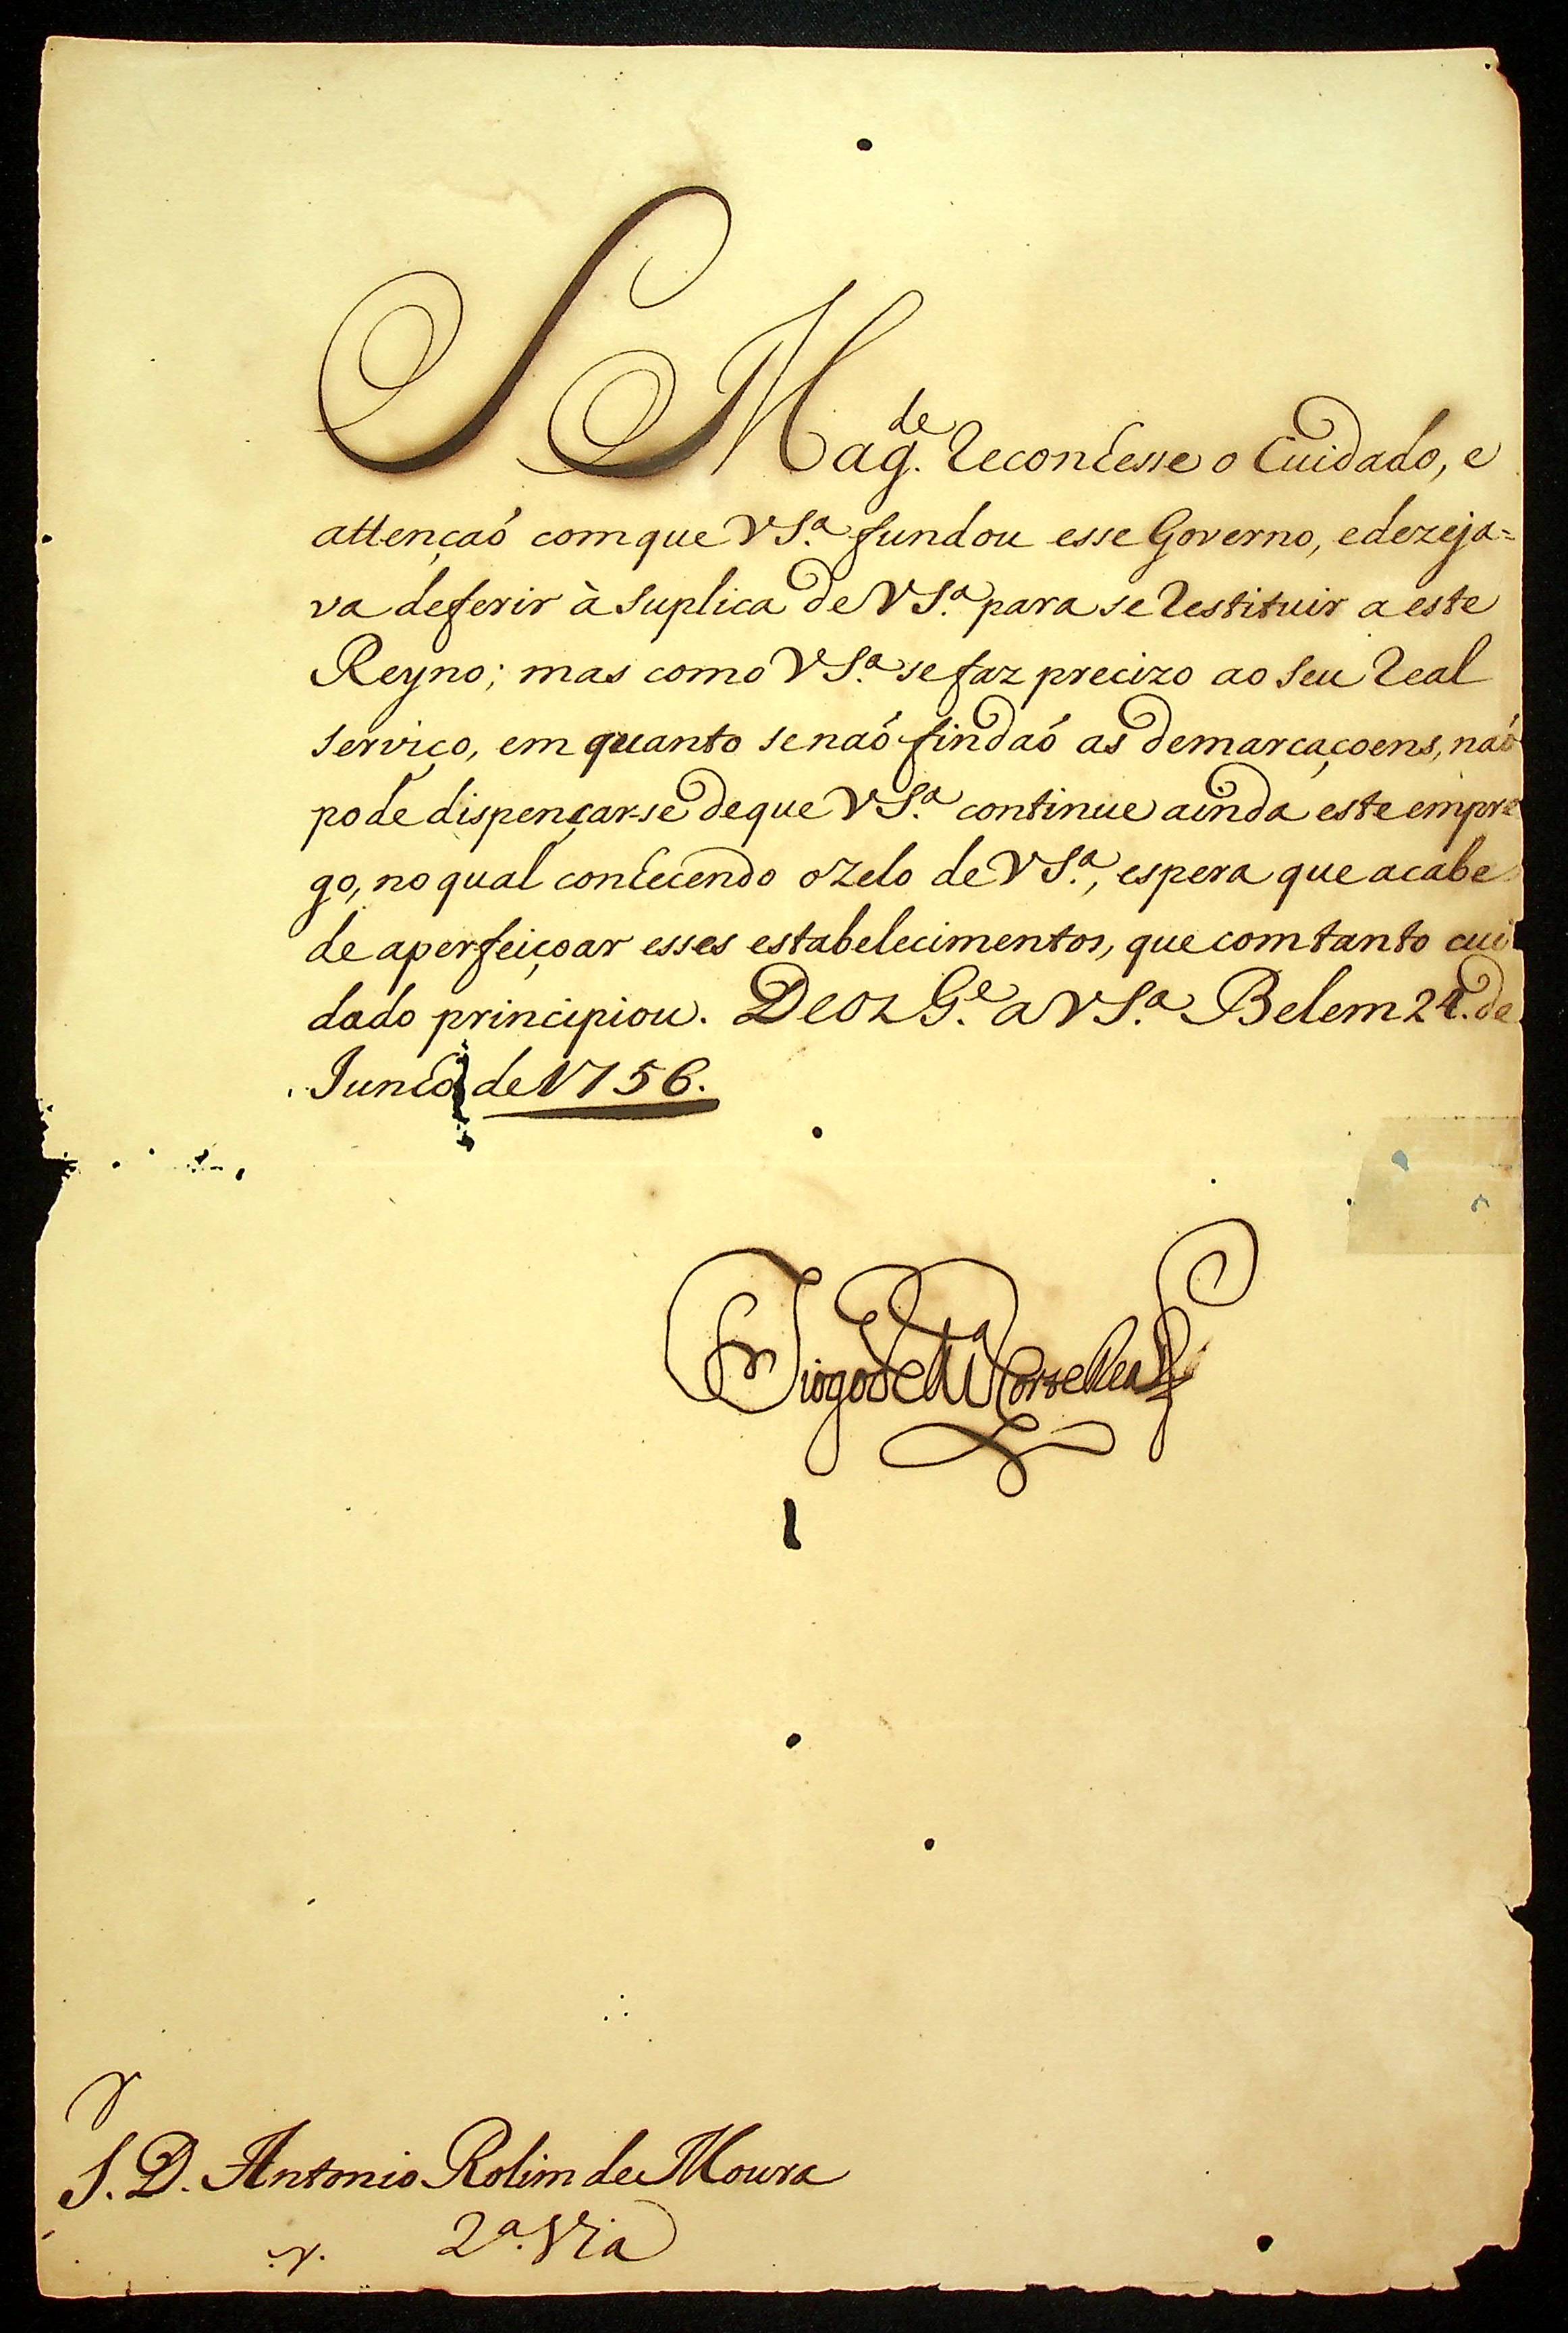 S Mag.de reconhesse o Cuidado, e
attençaó com que VS.ª fundou esse Governo, e dezeja=
va deferir à Suplica de VS.ª para se restituir a este
Reyno; mas como VS.ª se faz precizo ao Seu real
serviço, em quanto se naó findaó as demarcaçoens, naó
pode dispençar-se de que VS.ª continue ainda este empre
go, no qual conhecendo o Zelo de VS.ª, espera que acabe
de aperfeiçoar esses estabelecimentos, que com tanto cui
dado principiou. Deos G.e a VS.ª Belem 24. de
Junho de 1756.
Diogo de M.ça Corte Real
S.r D. Antonio Rolim de Moura
2.ª Via